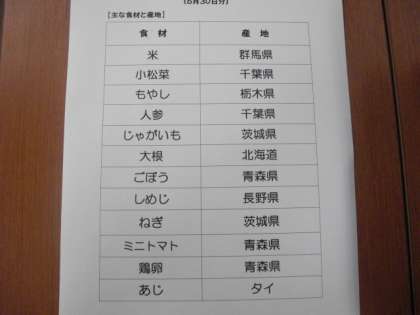 (6月30日分)
【主な食材と産地】
食材 産地
米 群馬県
小松菜 千葉県
もやし 栃木県
人参 千葉県
じゃがいも 茨城県
大根 北海道
ごぼう 青森県
しめじ 長野県
ねぎ 茨城県
ミニトマト 青森県
鶏卵 青森県
あじ タイ